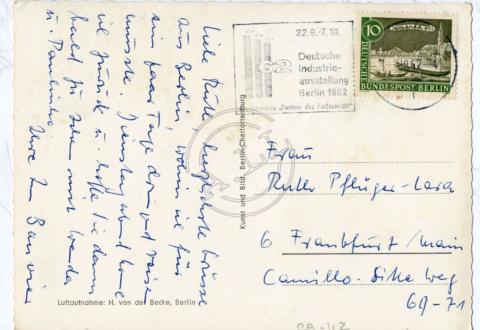 Liebe Ruth, herzlichste Grüsse
aus Berlin, wohin ich für
ein paar Tage dienstl. reisen
musste. Dienstag abend komme
ich zurück u. hoffe Sie dann
bald zu sehen mit
u. Paulinho
Ihre
22.9.-7.10.
62
Deutsche
Industrie-
ausstellung
Berlin 1962
"Partner des Fortschritts"
10
DEUTSCHE
BUNDESPOST BERLIN
Kunst und Bild, Berlin-Charlottenburg
Frau
Ruth Pflüger-Lara
6 Frankfurt/Main
Camillo-Sitte Weg
69-71
Luftaufnahme: H. von der Becke, Berlin